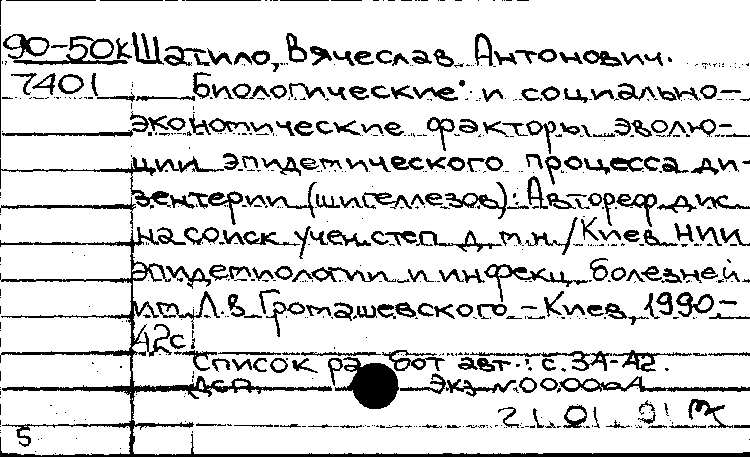 90-50к Шатило, Вячеслав Антонович.
7401 Биологические и социально-
экономические факторы эволю-
ции эпидемического процесса ди-
зентерии (шигеллезов): Автореф. дис.
на соиск. учен. степ. д. м. н. / Киев. НИИ
эпидемиологии и инфекц. болезней
им. Л. В. Громашевского - Киев, 1990 -
42с.
Список работ авт.: с. 34-42.
ДСП. Экз. N.
21.01.91
5